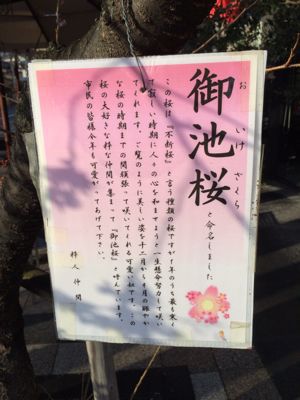 御池桜と命名しました
おいけざくら
この桜は『不断桜』と言う種類の桜ですが一年のうち最も寒く
て寂しい時期に人々の心を和ませようと一生懸命努力して咲い
てくれます。ご覧のように美しい姿を十二月から四月の賑やか
な桜の時期までの間頑張って咲いてくれる可愛い奴です。この
桜の大好きな粋な仲間が集まって『御池桜』と呼んでいます。
市民の皆様今年も可愛がってあげて下さい。
粋人仲間